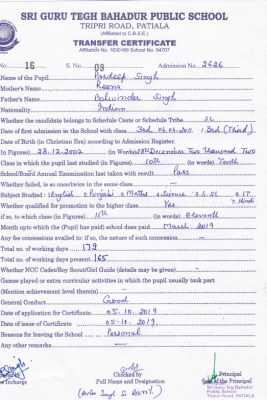 SRI GURU TEGH BAHADUR PUBLIC SCHOOL
TRIPRI ROAD, PATIALA
(Affiliated to C.B.S.E.)
TRANSFER CERTIFICATE
Affiliation No. 1630166 School No. 04707
No. 16 S. No. 03 Admission No. 2626
Name of the Pupil Pardeep Singh
Mother's Name Reena
Father's Name Balwinder Singh
Nationality Indian
Whether the candidate belongs to Schedule Caste or Schedule Tribe SC
Date of first admission in the School with class 3rd 04.04.2011 3rd (Third)
Date of Birth (in Christian Era) according to Admission Register.
(In Figures) 28.12.2002 (in Words) December Two Thousand Two
Class in which the pupil studied (in Figures) 10th (in Words) Tenth
School/Board Annual Examination last taken with result Pass
Whether failed, is so once/twice in the same class —
Subject Studied : English Punjabi Maths Science S.St I.T
Hindi
Whether qualified for promotion to the higher class Yes
if so, to which class (in Figures) 11th (in Words) Eleventh
Month upto which the (Pupil has paid) school dues paid March 2019
Any fee concessions availed to: if so, the nature of such concession —
Total No. of working days 179
Total No. of working days present 165
Whether NCC Cadet/Boy Scout/Girl Guide (details may be given) —
Games played or extra curricular activities in which the pupil usually took part
(Mention achievement level therein) —
General Conduct Good
Date of application for Certificate 05-10-2019
Date of issue of Certificate 05-10-2019.
Reasons for leaving the School Personal
Any other remarks —
Incharge
Checked by
Full Name and Designation
Principal
Seal of the Principal
Sri Guru Teg Bahadur
Public School
Tripuri Road, PATIALA